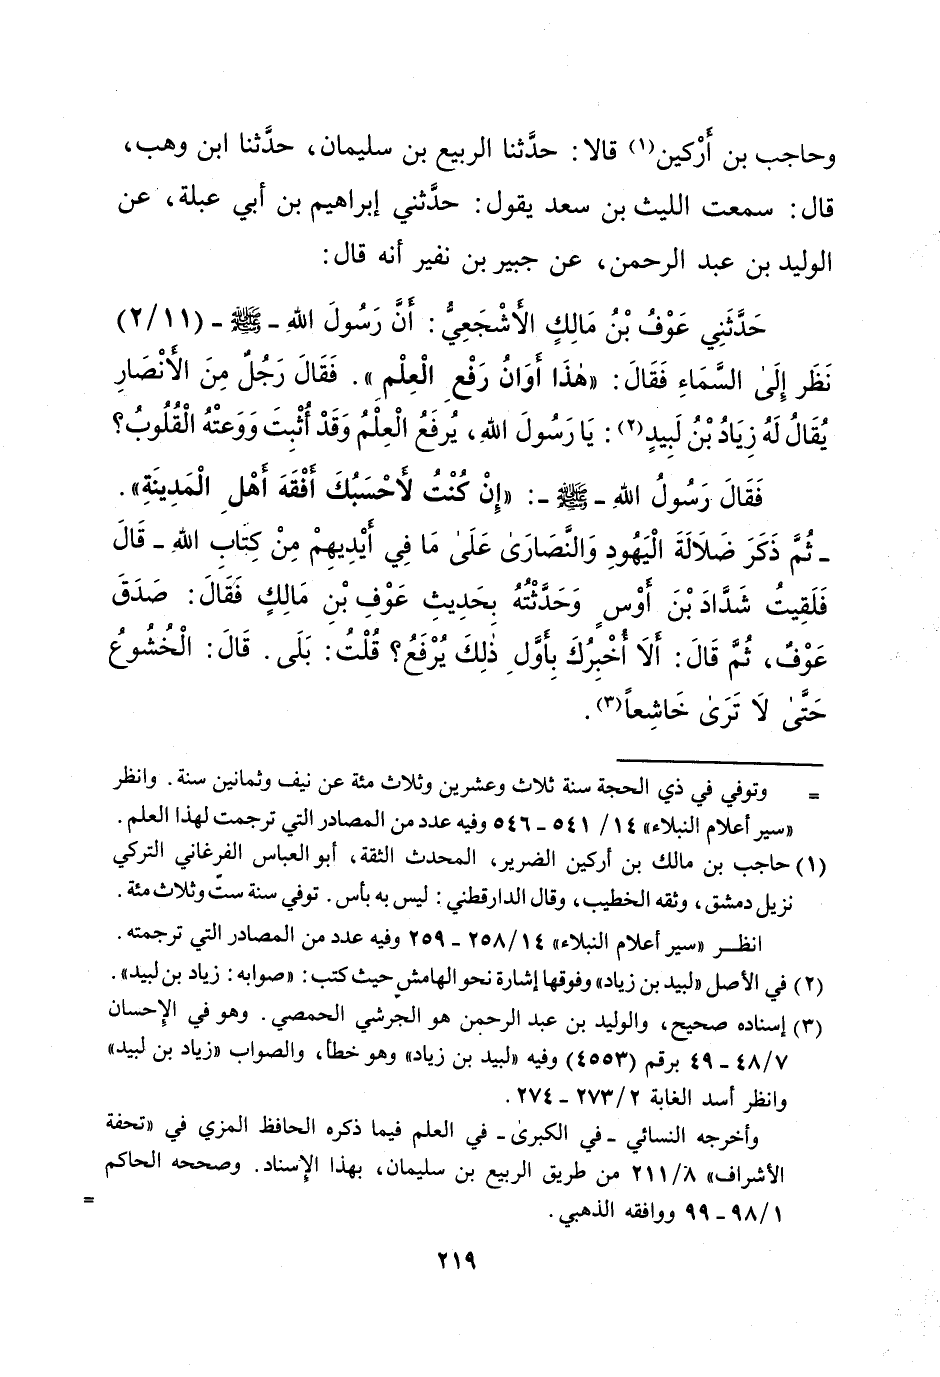 وحاجب بن أَرْكين(١) قالا: حدَّثنا الربيع بن سليمان، حدَّثنا ابن وهب،
قال: سمعت الليث بن سعد يقول: حدَّثني إبراهيم بن أبي عبلة، عن
الوليد بن عبد الرحمن، عن جبير بن نفير أنه قال:
حَدَّثَنِي عَوْفُ بْنُ مَالِكٍ الأَشْجَعِيُّ: أَنَّ رَسُولَ اللهِ - ﷺ - (٢/١١)
نَظَرَ إِلَىٰ السَّمَاءِ فَقَالَ: «هٰذَا أَوَانُ رَفْعِ الْعِلْمِ». فَقَالَ رَجُلٌ مِنَ الأَنْصَارِ
يُقَالُ لَهُ زِيَادُ بْنُ لَبِيدٍ(٢): يَا رَسُولَ اللهِ، يُرفَعُ الْعِلْمُ وَقَدْ أُثْبِتَ وَوَعتْهُ الْقُلُوبُ؟
فَقَالَ رَسُولُ اللهِ - ﷺ -: «إِنْ كُنْتُ لأَحْسَبُكَ أَفْقَهَ أَهْلِ الْمَدِينَةِ».
- ثُمَّ ذَكَرَ ضَلَالَةَ الْيَهُودِ وَالنَّصَارَىٰ عَلَىٰ مَا فِي أَيْدِيهِمْ مِنْ كِتَابِ اللهِ - قَالَ
فَلَقِيتُ شَدَّادَ بْنَ أَوْسٍ وَحَدَّثْتُهُ بِحَدِيثِ عَوْفِ بْنِ مَالِكٍ فَقَالَ: صَدَقَ
عَوْفٌ، ثُمَّ قَالَ: أَلَا أُخْبِرُكَ بِأَوَّلِ ذٰلِكَ يُرْفَعُ؟ قُلْتُ: بَلَى. قَالَ: الْخُشُوعُ
حَتَّىٰ لَا تَرَىٰ خَاشِعاً(٣).
= وتوفي في ذي الحجة سنة ثلاث وعشرين وثلاث مئة عن نيف وثمانين سنة. وانظر
«سير أعلام النبلاء» ١٤/ ٥٤١ - ٥٤٦ وفيه عدد من المصادر التي ترجمت لهذا العلم.
(١) حاجب بن مالك بن أركين الضرير، المحدث الثقة، أبو العباس الفرغاني التركي
نزيل دمشق، وثقه الخطيب، وقال الدارقطني: ليس به بأس. توفي سنة ستّ وثلاث مئة.
انظر «سير أعلام النبلاء» ٢٥٨/١٤ - ٢٥٩ وفيه عدد من المصادر التي ترجمته.
(٢) في الأصل «لبيد بن زياد» وفوقها إشارة نحو الهامش حيث كتب: «صوابه: زياد بن لبيد».
(٣) إسناده صحيح، والوليد بن عبد الرحمن هو الجُرشي الحمصي. وهو في الإحسان
٤٨/٧ - ٤٩ برقم (٤٥٥٣) وفيه «لبيد بن زياد» وهو خطأ، والصواب «زياد بن لبيد»
وانظر أسد الغابة ٢٧٣/٢ - ٢٧٤.
وأخرجه النسائي - في الكبرىٰ - في العلم فيما ذكره الحافظ المزي في «تحفة
الأشراف» ٢١١/٨ من طريق الربيع بن سليمان، بهذا الإسناد. وصححه الحاكم
٩٨/١ - ٩٩ ووافقه الذهبي. =
٢١٩